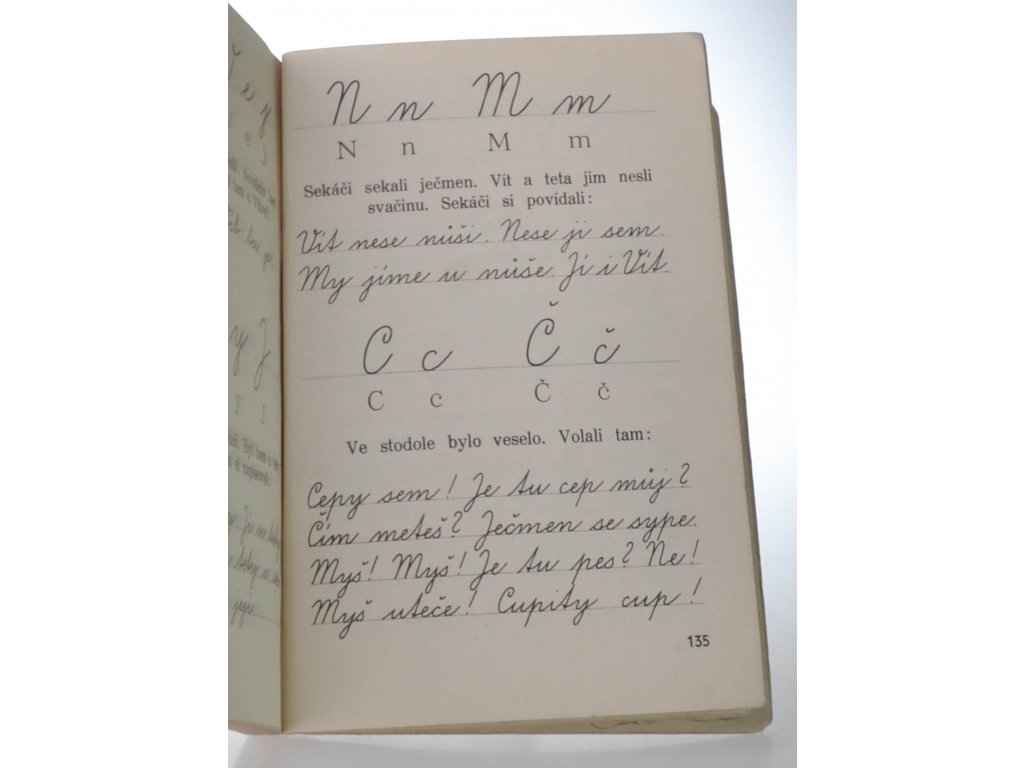 N n M m
N n M m
Sekáči sekali ječmen. Vít a teta jim nesli
svačinu. Sekáči si povídali:
Vít nese nůši. Nese ji sem.
My jíme u nůše. Jí i Vít.
C c Č č
C c Č č
Ve stodole bylo veselo. Volali tam:
Cepy sem! Je tu cep můj?
Čím meteš? Ječmen se sype.
Myš! Myš! Je tu pes? Ne!
Myš uteče! Cupity cup!
135